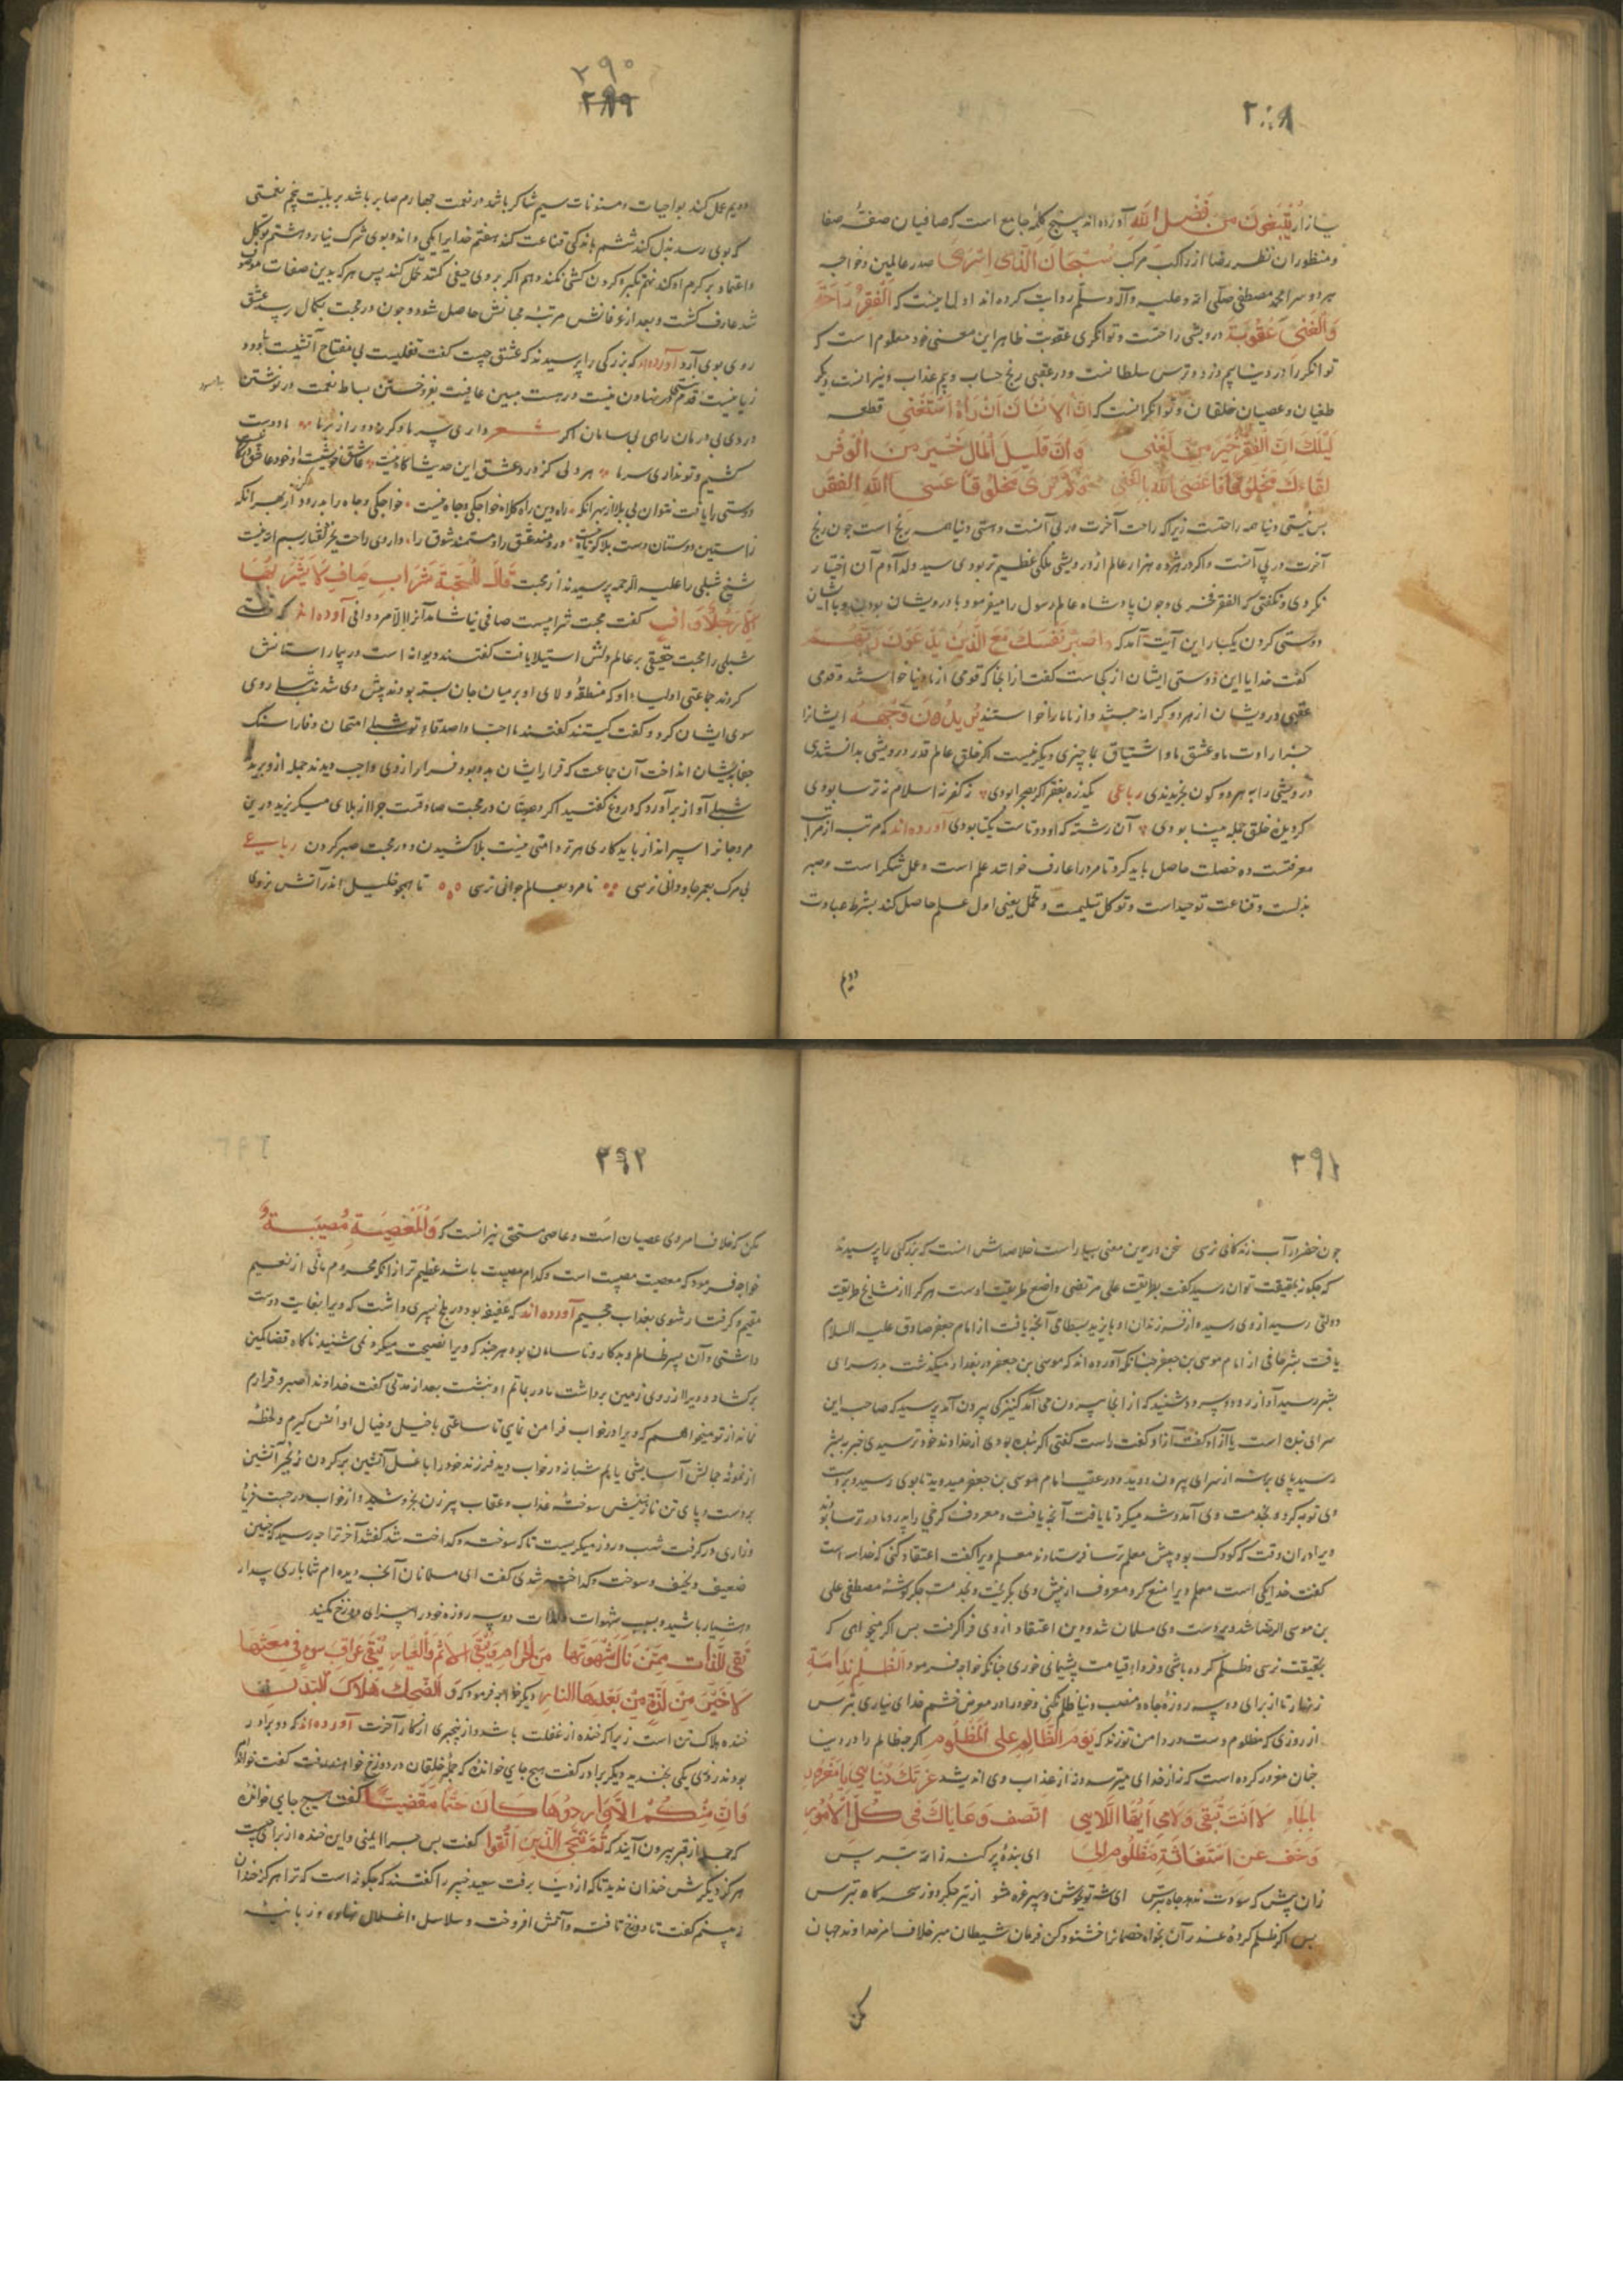 ۲۸۹
بازار یبتغون من فضل الله آورده‌اند پنج کلمهٔ جامع است که صافیان صفهٔ صفا
و منظوران نظر رضا از راکب مرکب سبحان الذی اسری صدر عالمین و خواجه
هر دو سرا محمد مصطفی صلی الله علیه و آله و سلم روایت کرده‌اند اول اینست که الفقر راحة
والغنی عقوبة درویشی راحتست و توانگری عقوبت ظاهر این معنی خود معلوم است که
توانگر را در دنیا بیم دزد و ترس سلطانست و در عقبی رنج حساب و بیم عذاب و نیرانست و دیگر
طغیان و عصیان خلقان و توانگرانست که ان الانسان ان رآه استغنی قطعه
دلیلک ان الفقر خیر من الغنی وان قلیل المال خیر من الوفر
لقاءک مخلوقا عصی الله بالغنی ولم تری مخلوقا عصی الله بالفقر
پس نیستی دنیا همه راحتست زیرا که راحت آخرت در پی آنست و هستی دنیا همه رنج است چون رنج
آخرت در پی آنست و اگر در هژده هزار عالم از درویشی ملکی عظیم‌تر بودی سید ولد آدم آن اختیار
نکردی و نگفتی که الفقر فخری و چون پادشاه عالم رسول را میفرمود با درویشان بودن و با ایشان
دوستی کردن یکبار این آیت آمد که واصبر نفسک مع الذین یدعون ربهم
گفت خدایا این دوستی ایشان از کجاست گفت از آنجا که قومی از ما دنیا خواستند و قومی
عقبی درویشان از هر دو کرانه جستند و از ما ما را خواستند یریدون وجهه ایشانرا
جز ارادت ما و عشق ما و اشتیاق بما چیزی دیگر نیست اگر خلق عالم قدر درویشی بدانستندی
درویشی را به هر دو کون بخریدندی رباعی یکذره بفقر اگر بصحرا بودی نه کفر نه اسلام نه ترسا بودی
گر دیدهٔ خلق جمله بینا بودی آن رشته که او دوتاست یکتا بودی آورده‌اند که مرتب از مراتب
معرفتست ده خصلت حاصل باید کرد تا مرد را عارف خوانند علم است و عمل شکر است و صبر
بذلست و قناعت توحید است و توکل تسلیمست و تحمل یعنی اول علم حاصل کند بشرط عبادت
دویم
۲۹۰
۲۸۹
دویم عمل کند بواجبات و مسنونات سیم شاکر باشد در نعمت چهارم صابر باشد بر بلیت پنجم نعمتی
که بوی رسد بذل کند ششم باندکی قناعت کند هفتم خدایرا یکی داند و بوی شرک نیارد هشتم توکل
و اعتماد بر کرم او کند نهم تکبر و گردن کشی نکند دهم اگر بر وی حیفی کنند تحمل کند پس هر که بدین صفات موصوف
شد عارف گشت و بعد از عرفانش مرتبهٔ محبانش حاصل شود و چون در محبت بکمال رسد عشق
روی بوی آرد آورده‌اند که بزرگی را پرسیدند که عشق چیست گفت
زیانیست قدم در نهادن نیست درهست مبین عافیت بفروختن بساط نعمت درنوشتن
دردی بی درمان راهی بی سامان اگر شعر داری سر ما وگرنه دور از بر ما ما دوست
کشیم و تو نداری سر ما هر دلی کز درد عشق این حدیث آگاه نیست
دوستی را یافت نتوان بی بلا زبهر آنکه راه دین راه کلاه خواجگی و جاه نیست خواجگی و جاه را بدرود کن از بهر آنکه
زاستین دوستان دست بلا کوتاه نیست دردمند عشق را و مستمند شوق را داروی راحت بجز لفتار بسم الله نیست
شیخ شبلی را علیه الرحمه پرسیدند از محبت قال المحبة شراب صاف لا یشربها
الا رجل واف گفت محبت شرابیست صافی نیاشامد آنرا الا مرد وافی آورده‌اند که وقتی
شبلی را محبت حقیقی بر عالم دلش استیلا یافت گفتند دیوانه است در بیمارستانش
کردند جماعتی اولیاء او که منطقهٔ ولای او بر میان جان بسته بودند پیش وی شدند شبلی روی
سوی ایشان کرد و گفت کیستند گفتند ما احباء و اصدقاء تو شبلی امتحان وفا را سنگ
بجانب ایشان انداخت آن جماعت که قرار ایشان بدو بود فرار از وی واجب دیدند جمله ازو برمیدند
شبلی آواز برآورد که دروغ گفتید اگر دعویتان در محبت صادقست چرا از بلای میگریزید درین
مرد جانباز سپرانداز باید کاری هر تر دامنی نیست بلا کشیدن و در محبت صبر کردن رباعی
بی مرگ بعمر جاودانی نرسی نا مرد بعالم جوانی نرسی تا همچو خلیل اندر آتش نروی
۲۹۱
چون خضر در آب زندگانی نرسی سخن درین معنی بسیار است خلاصه‌اش آنست که بزرگی را پرسیدند
که چگونه بحقیقت توان رسید گفت بطریقت علی مرتضی واضع طریقت اوست هر که را از مشایخ طریقت
دولتی رسید از وی رسید و از فرزندان او بایزید بسطامی آنچه یافت از امام جعفر صادق علیه السلام
یافت بشر حافی از امام موسی بن جعفر چنانکه آورده‌اند که موسی بن جعفر در بغداد میگذشت بدر سرای
بشر رسید آواز رود و سرود شنید که از آنجا بیرون می آمد کنیزکی بیرون آمد پرسید که صاحب این
سرای بنده است یا آزاد گفت آزاد گفت راست گفتی اگر بنده بودی از خداوند خود ترسیدی خبر به بشر
رسید پای برهنه از سرای بیرون دوید و در عقب امام موسی بن جعفر میدوید تا بوی رسید و بر دست
وی توبه کرد و بخدمت وی آمد و شد میکرد تا یافت آنچه یافت و معروف کرخی را پدر و مادر ترسا بودند
ویرا در آن وقت که کودک بود پیش معلم ترسا فرستادند معلم ویرا گفت اعتقاد کنی که خدا سه است
گفت خدا یکی است معلم ویرا منع کرد معروف از پیش وی بگریخت و بخدمت جگر گوشهٔ مصطفی علی
بن موسی الرضا شد و بر دست وی مسلمان شد و دین و اعتقاد از وی فرا گرفت پس اگر میخواهی که
بحقیقت نرسی و ظلم کرده باشی و فردا قیامت پشیمانی خوری چنانکه خواجه فرمود الظلم ندامة
زنهار تا از برای دو سه روزهٔ جاه و منصب دنیا ظلم نکنی و خود را در معرض خشم خدای نیاری بترس
از روزی که مظلوم دست در دامن تو زند که یوم الظالم علی المظلوم اگر چه ظالم را در دنیا
چنان مغرور کرده است که نه از خدای میترسد و نه از عذاب وی اندیشد غرتک دنیاسی یا مغرور
بالجاه لا انت تبقی ولا هی ایها اللاهی انصف وعایاک فی کل الامور
وخف عن استغاثة مظلوم الی ای بندهٔ پر گنه ز الله بترس
زان پیش که سودت ندهد جاه بترس ای شه تو بجوشن و سپر غره مشو از تیر جگر دوز سحرگاه بترس
پس اگر ظلم کرده عذر آن بخواه خصمانرا خشنود کن فرمان شیطان مبر خلاف امر خداوند جهان
مکن
۲۹۲
مکن که خلاف امر وی عصیان است و عاصی مستحق نیرانست که والمعصیة مصیبة و
خواجه فرمود که معصیت مصیبت است و کدام مصیبت باشد عظیم‌تر از آنکه محروم مانی از نعیم
مقیم و گرفتار شوی بعذاب جحیم آورده‌اند که عفیفهٔ بود در بلخ پسری داشت که ویرا بغایت دوست
داشتی و آن پسر ظالم و بدکار و ناسامان بود هر چند که ویرا نصیحت میکرد نمی شنید ناگاه قضا کمین
برگشاد و ویرا از روی زمین برداشت مادر بماتم او بنشست بعد از مدتی گفت خداوندا صبر و قرارم
نماند از تو میخواهم که ویرا در خواب فرا من نمایی تا ساعتی با خیل و خیال او انس گیرم و لحظهٔ
از نمونهٔ جمالش آسایشی یابم شبانه در خواب دید فرزند خود را با غل آتشین بر گردن و زنجیر آتشین
بر دست و پای تن نازنینش سوختهٔ عذاب و عقاب پیر زن بخروشید و از خواب درجست فریاد
و زاری در گرفت شب و روز میگریست تا که سوخته و گداخته شد گفتند آخر ترا چه رسید که چنین
ضعیف و نحیف و سوخته و گداخته شدی گفت ای مسلمانان آنچه دیده‌ام شما باری بیدار
و هشیار باشید و بسبب شهوات و لذات دو سه روزه خود را سزای دوزخ مکنید
تفنی اللذات ممن نال شهوتها من الحرام ویبقی الاثم والعار تبقی عواقب سوء فی مغبتها
لا خیر من لذة من بعدها النار دیگر خواجه فرمود که و الضحک هلاک البدن
خنده هلاک تن است زیرا که خنده از غفلت باشد و از بیخبری از کار آخرت آورده‌اند که دو برادر
بودند روزی یکی بخندید دیگر برادر گفت هیچ جای خواندهٔ که جمله خلقان در دوزخ خواهند رفت گفت خوانده‌ام
وان منکم الا واردها کان حتما مقضیا گفت هیچ جایی خواندهٔ
که جمله از قبر بیرون آیند که ثم ننجی الذین اتقوا گفت پس چرا ایمنی و این خنده از برای چیست
هرگز دیگرش خندان ندید تا که از دنیا برفت سعید جبیر را گفتند که چگونه است که ترا هرگز خندان
نمی‌بینیم گفت تا دوزخ تافته و آتش افروخته و سلاسل و اغلال نهاده و زبانیه